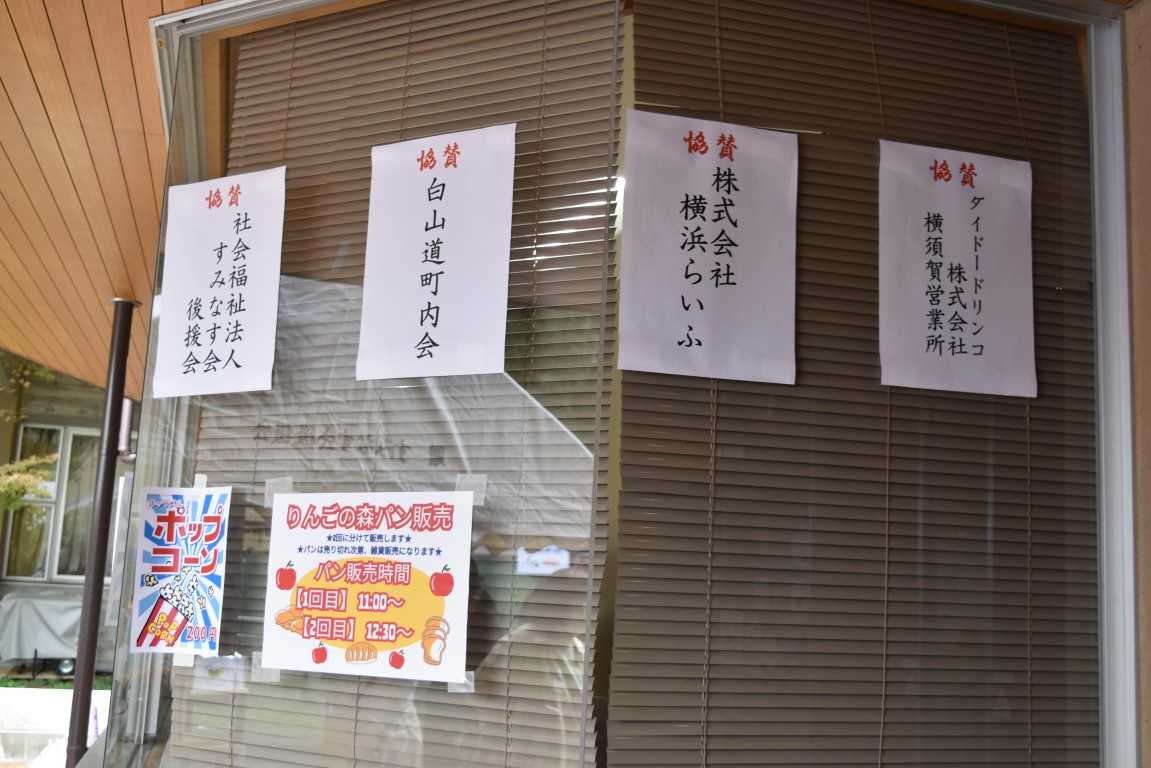 協賛
社会福祉法人
すみなす会
後援会
協賛
白山道町内会
協賛
株式会社
横浜らいふ
協賛
ダイドードリンコ
株式会社
横須賀営業所
ポップ
コーン
POP
CORN
200円
りんごの森パン販売
★2回に分けて販売します★
★パンは売り切れ次第、雑貨販売になります★
パン販売時間
【1回目】 11:00～
【2回目】 12:30～